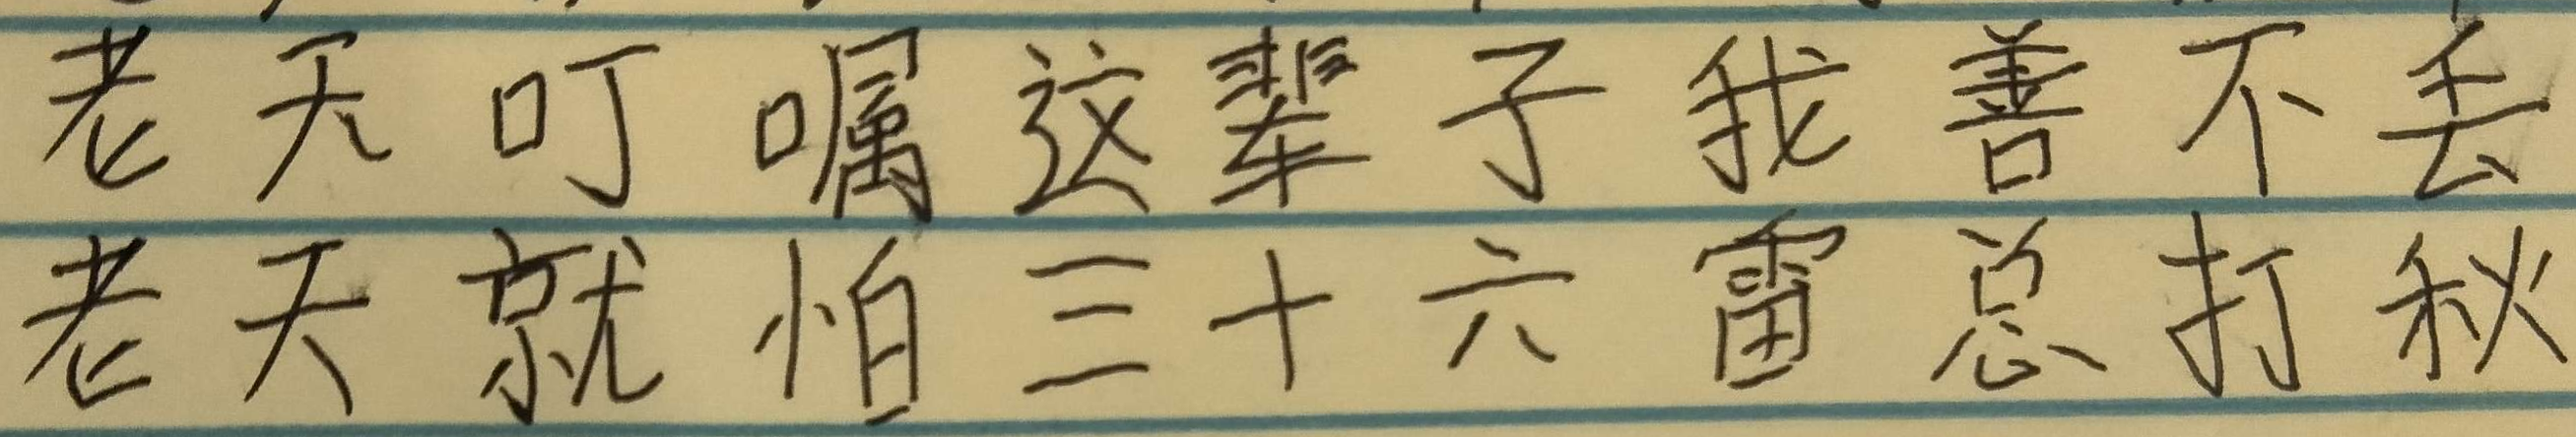 老天叮嘱这辈子我善不丢
老天就怕三十六雷总打秋